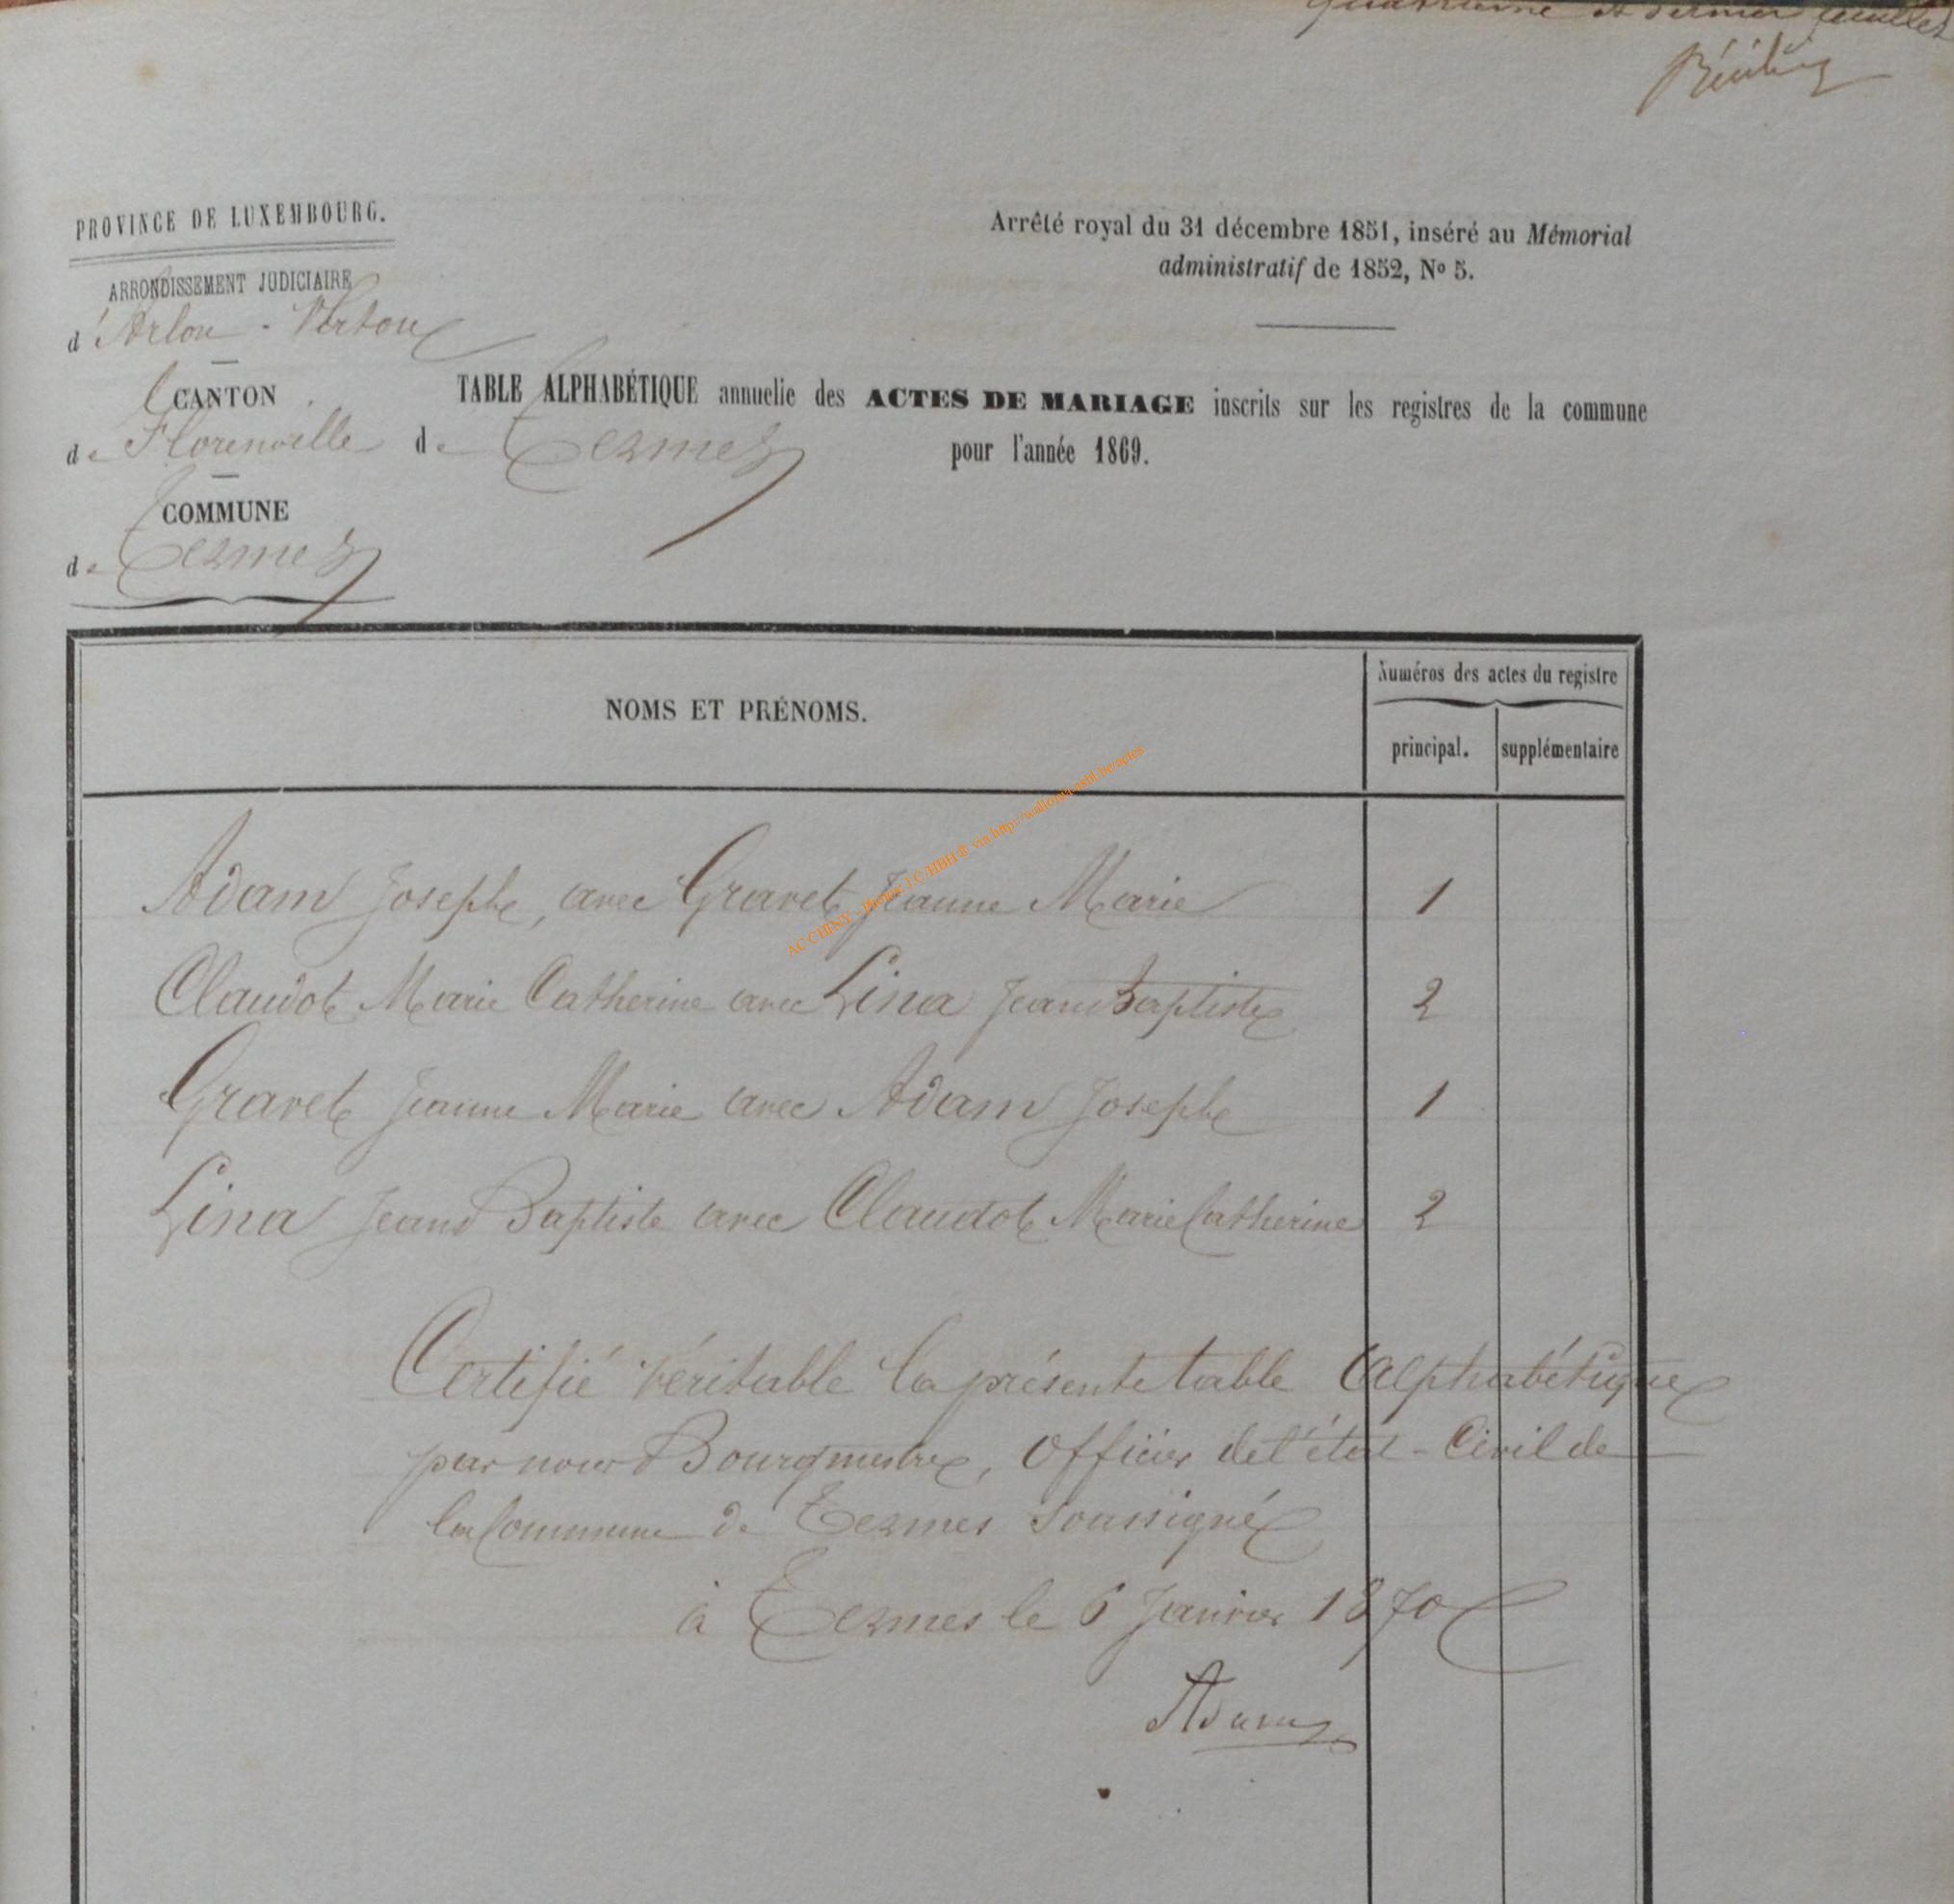 quatrième et dernier feuillet
PROVINCE DE LUXEMBOURG.
ARRONDISSEMENT JUDICIAIRE
d'Arlon - Virton
CANTON
de Florenville
COMMUNE
de Termes
Arrêté royal du 31 décembre 1851, inséré au Mémorial
administratif de 1852, No 5.
TABLE ALPHABÉTIQUE annuelle des ACTES DE MARIAGE inscrits sur les registres de la commune
de Termes pour l'année 1869.
NOMS ET PRÉNOMS.
Numéros des actes du registre
principal. supplémentaire
Adam Joseph, avec Gravet Jeanne Marie 1
Claudot Marie Catherine avec Lina Jean Baptiste 2
Gravet Jeanne Marie avec Adam Joseph 1
Lina Jean Baptiste avec Claudot Marie Catherine 2
Certifié véritable la présente table Alphabétique
par nous Bourgmestre, Officier de l'état-Civil de
la Commune de Termes soussigné
à Termes le 6 Janvier 1870
Adam
AC CHINY - photos J.C. HBH © via http://